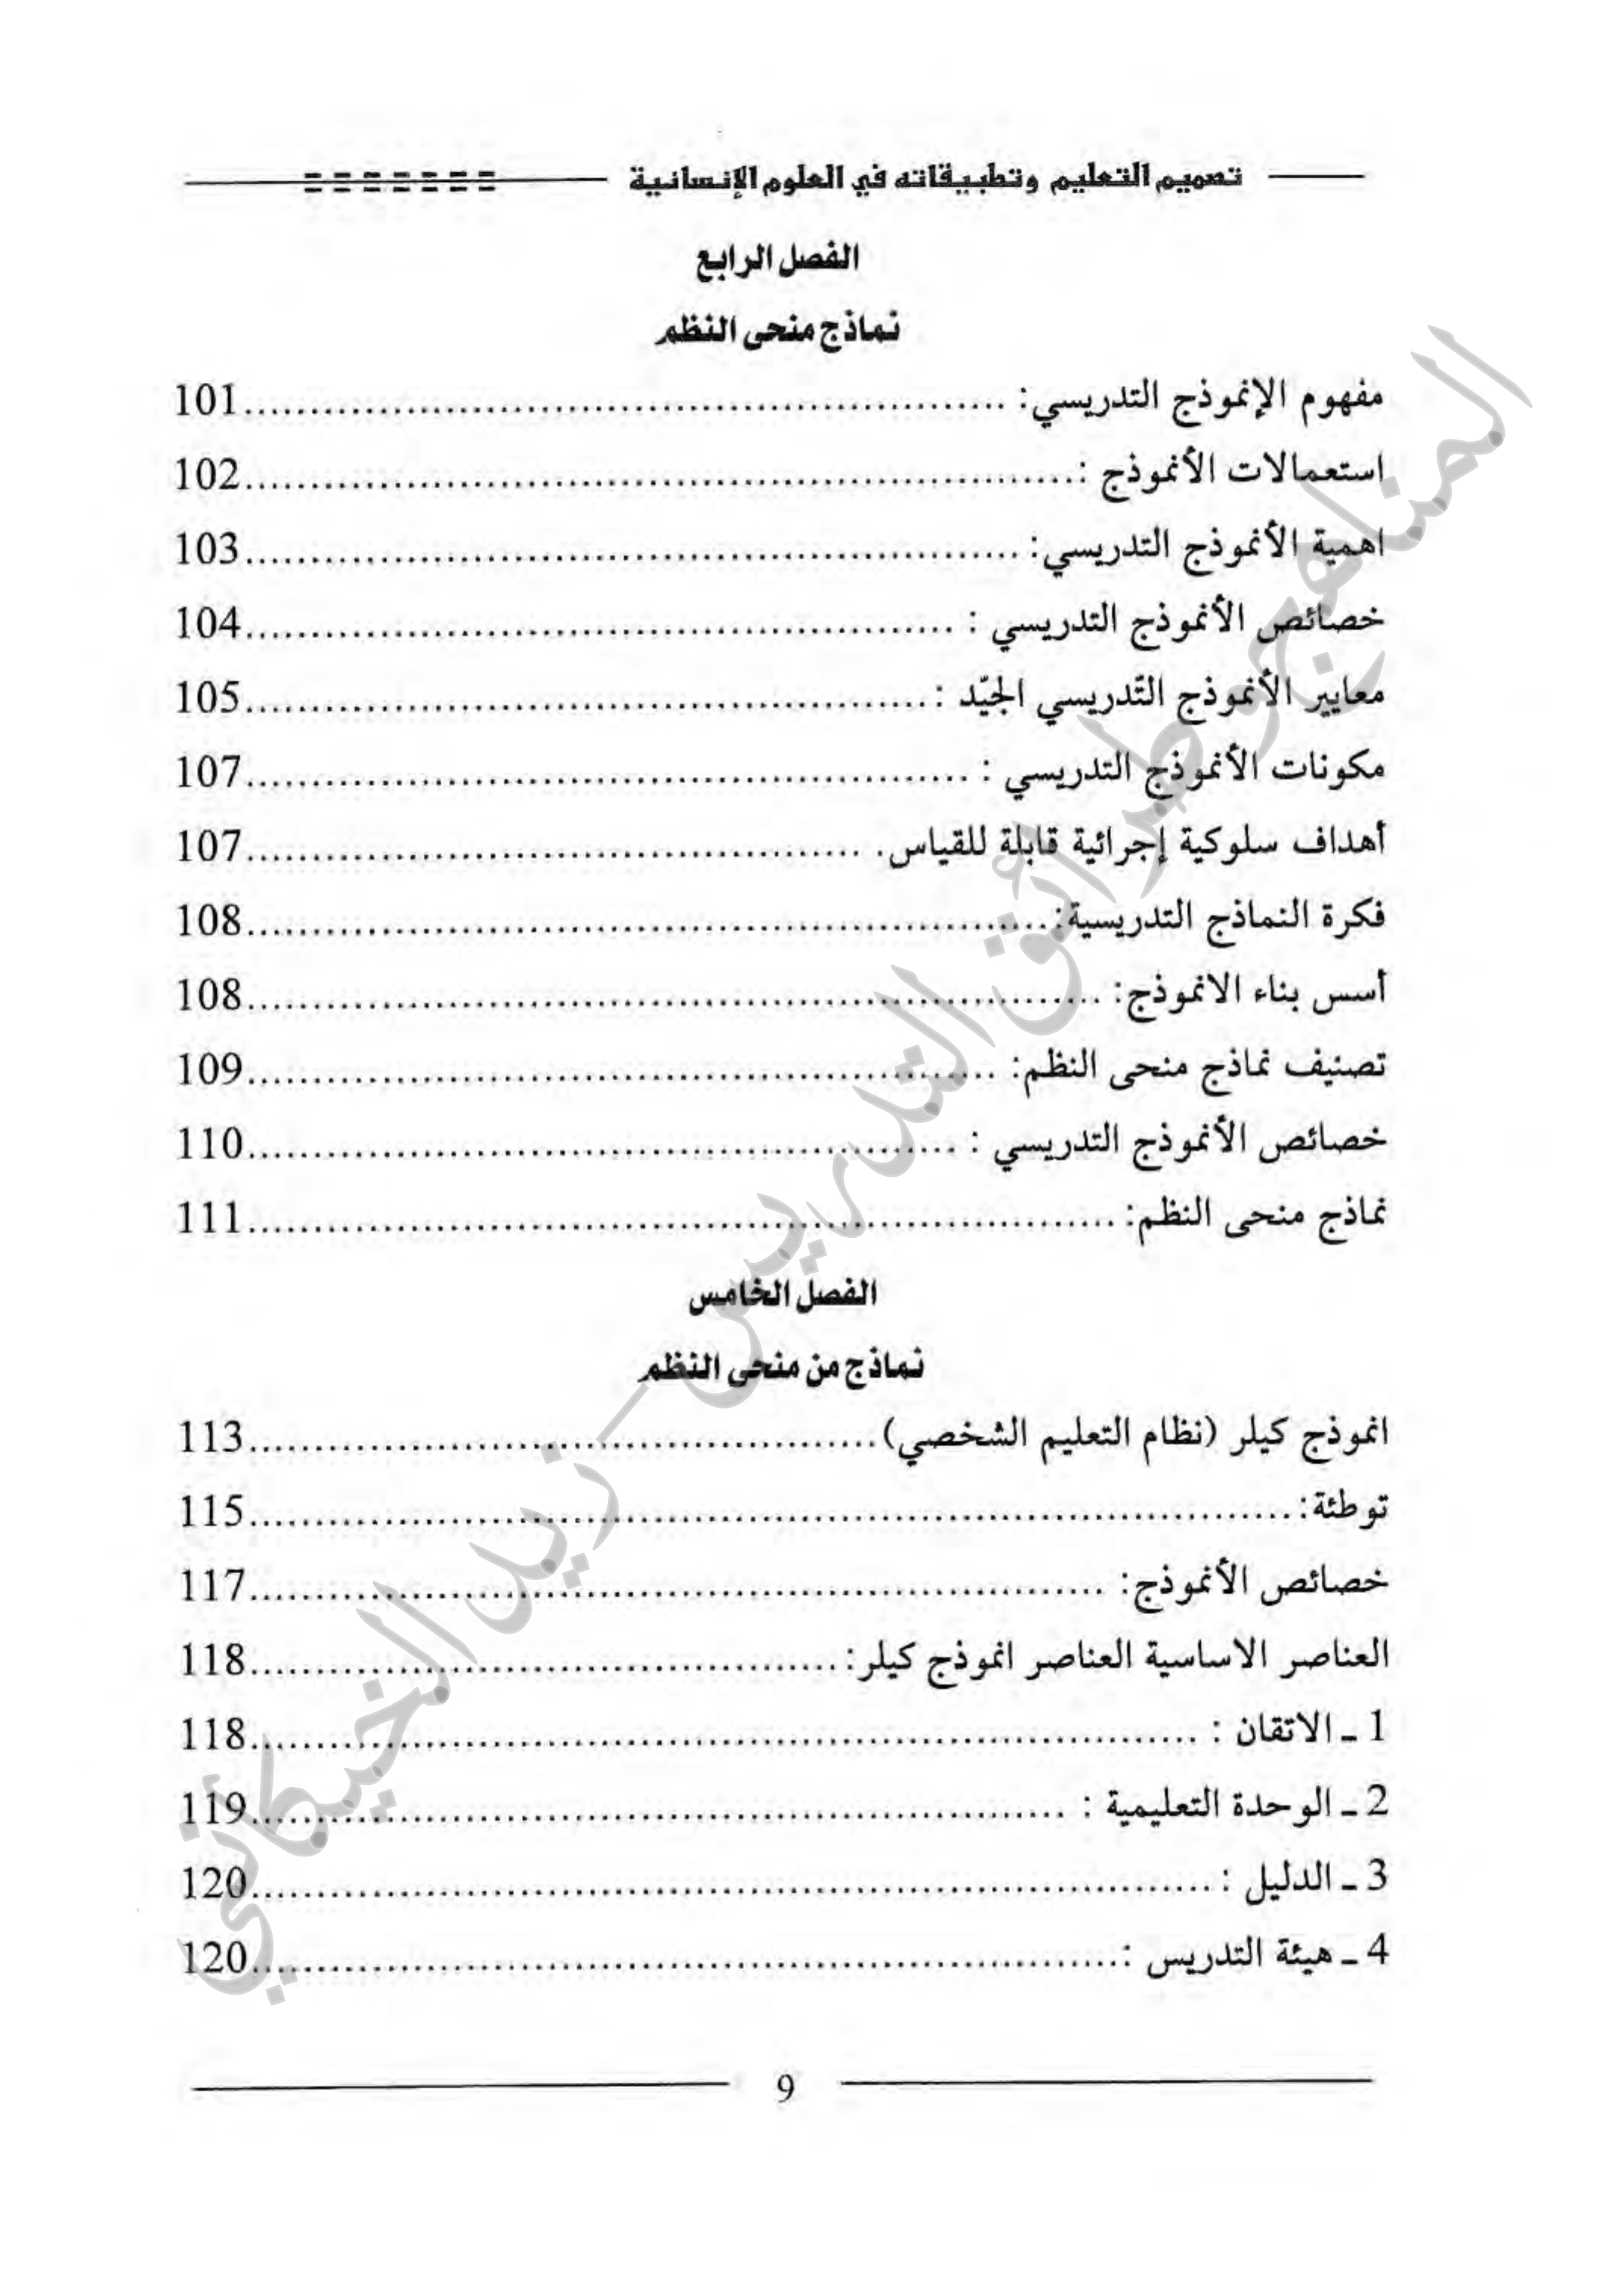 تصميم التعليم وتطبيقاته في العلوم الإنسانية
الفصل الرابع
نماذج منحى النظم
مفهوم الإنموذج التدريسي: ............ 101
استعمالات الأنموذج : ............ 102
اهمية الأنموذج التدريسي: ............ 103
خصائص الأنموذج التدريسي : ............ 104
معايير الأنموذج التّدريسي الجيّد : ............ 105
مكونات الأنموذج التدريسي : ............ 107
أهداف سلوكية إجرائية قابلة للقياس. ............ 107
فكرة النماذج التدريسية: ............ 108
أسس بناء الانموذج: ............ 108
تصنيف نماذج منحى النظم: ............ 109
خصائص الأنموذج التدريسي : ............ 110
نماذج منحى النظم: ............ 111
الفصل الخامس
نماذج من منحى النظم
انموذج كيلر (نظام التعليم الشخصي) ............ 113
توطئة: ............ 115
خصائص الأنموذج: ............ 117
العناصر الاساسية العناصر انموذج كيلر: ............ 118
1 ـ الاتقان : ............ 118
2 ـ الوحدة التعليمية : ............ 119
3 ـ الدليل : ............ 120
4 ـ هيئة التدريس : ............ 120
9
المناهج وطرائق التدريس – زيد الخيكاني